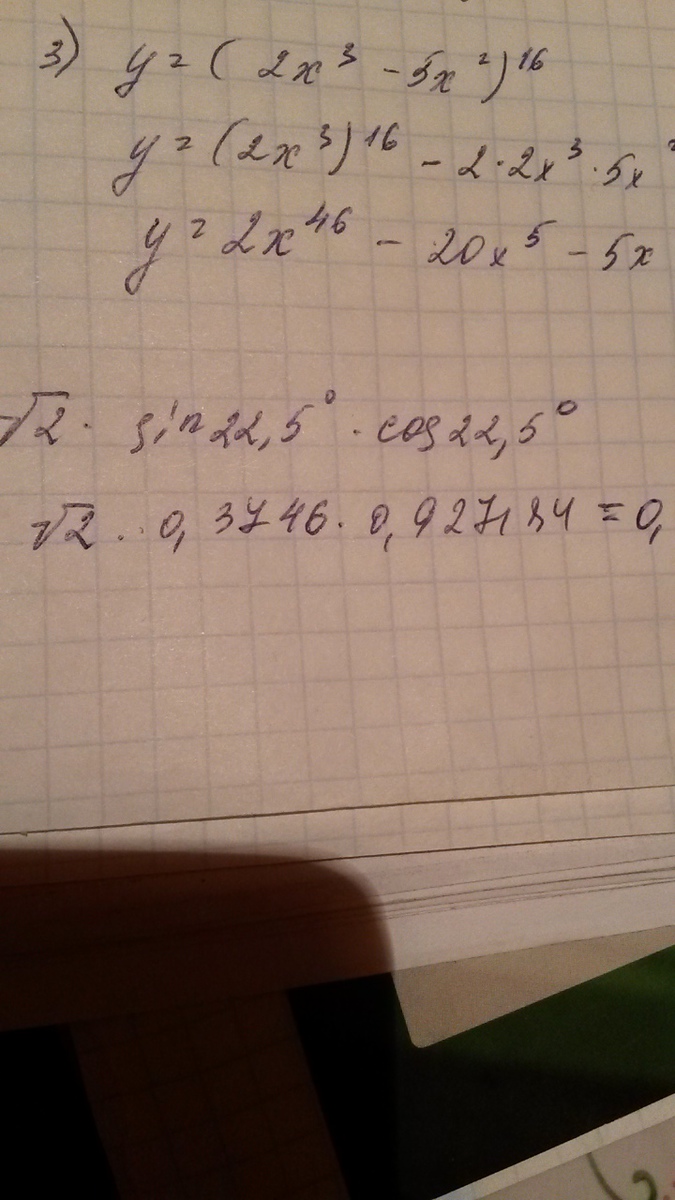 3) y = ( 2x³ - 5x²)¹⁶
y = (2x³)¹⁶ - 2·2x³·5x²
y = 2x⁴⁶ - 20x⁵ - 5x
√2 · sin 22,5° · cos 22,5°
√2 · 0,3746 · 0,927184 = 0,